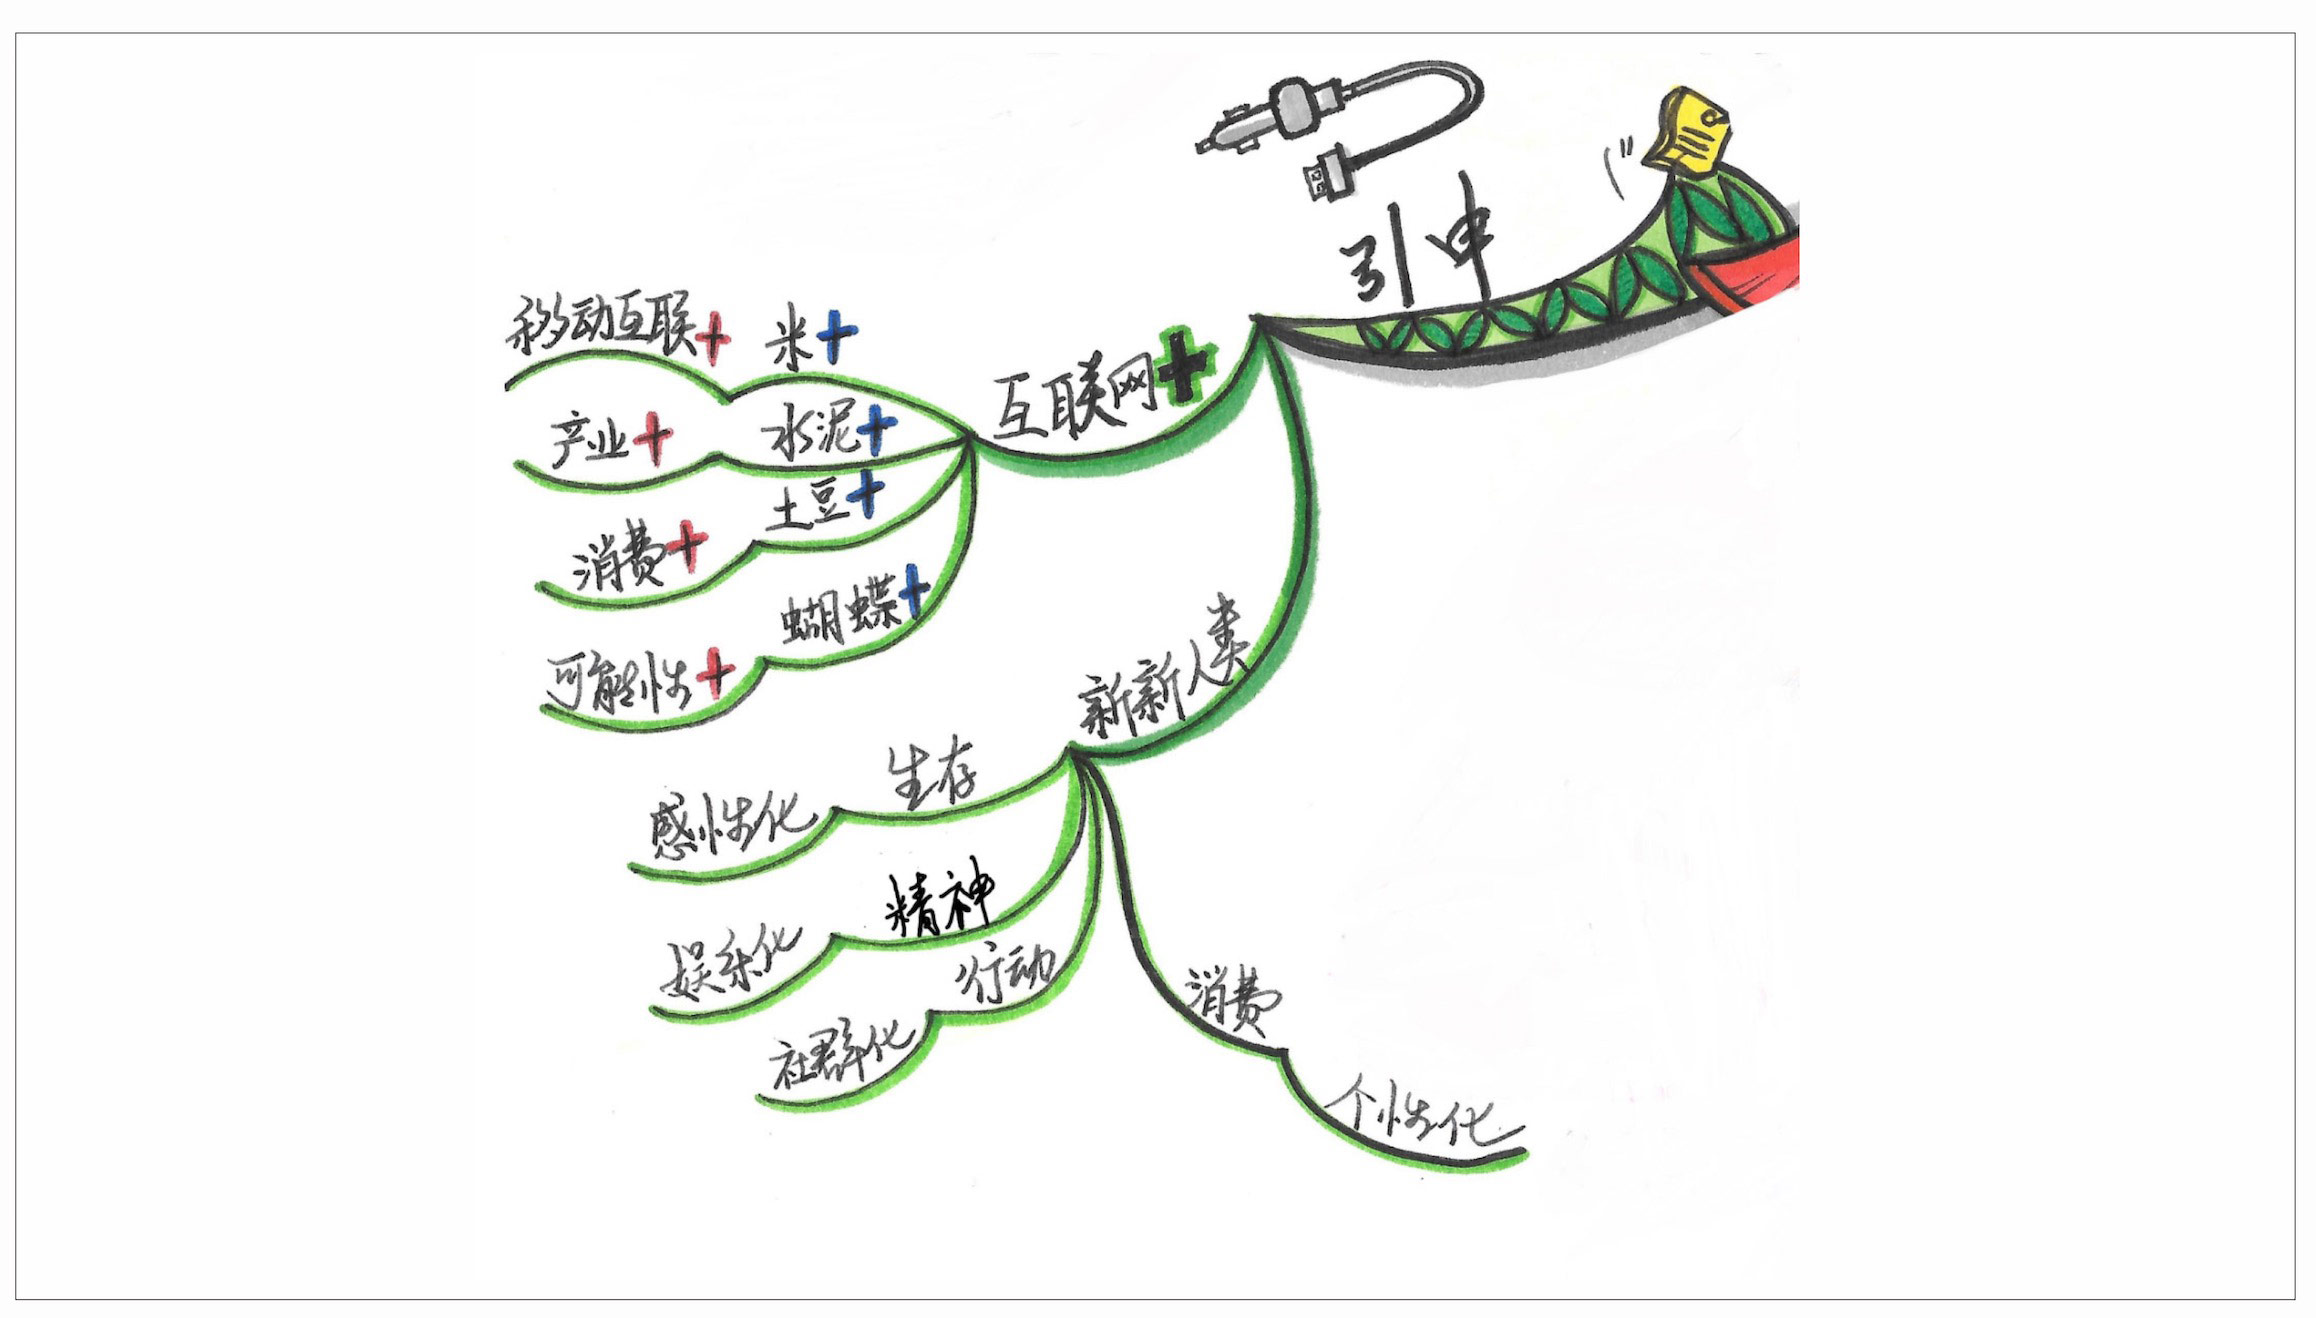 引申
互联网+
米+
移动互联+
水泥+
产业+
土豆+
消费+
蝴蝶+
可能性+
新新人类
生存
感性化
精神
娱乐化
行动
社群化
消费
个性化